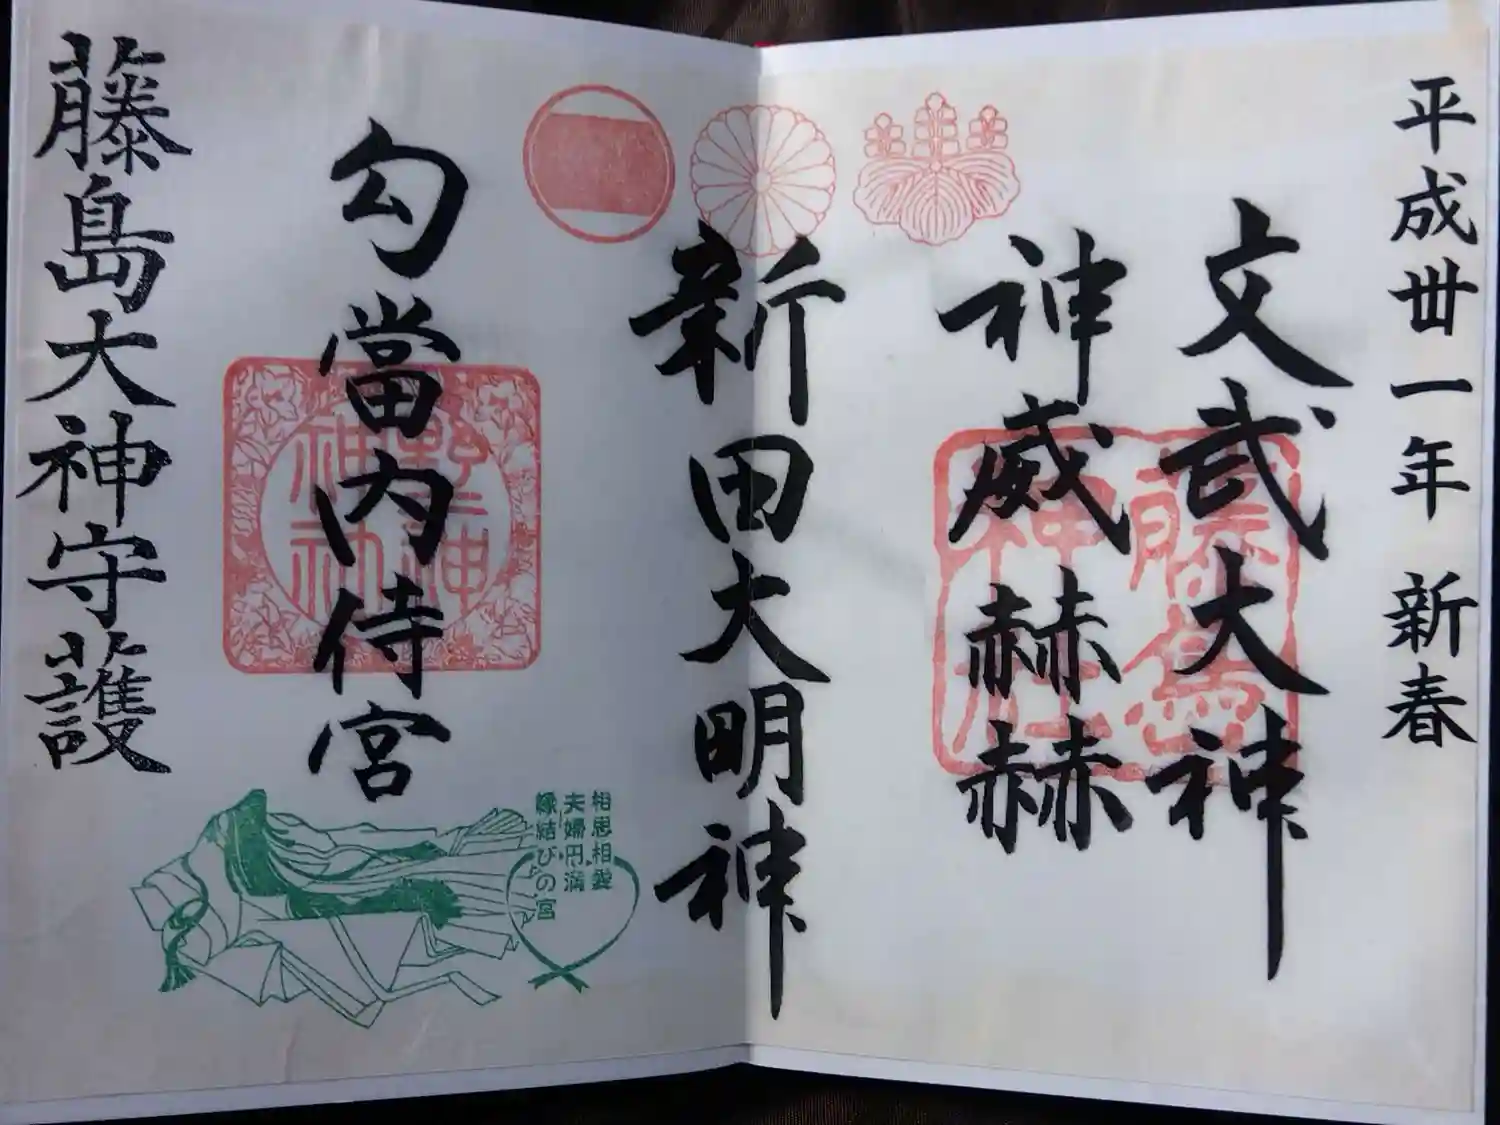 平成丗一年 新春
文武大神
神威赫赫
新田大明神
勾當内侍宮
藤島大神守護
藤島
神社
野神
神社
相思相愛
夫婦円満
縁結びの宮